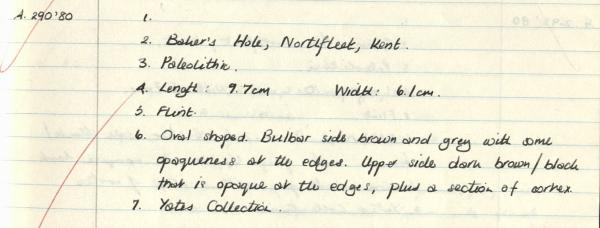 A. 290'80
1.
2. Baker's Hole, Northfleet, Kent.
3. Paleolithic.
4. Length: 9.7cm Width: 6.1cm.
5. Flint.
6. Oval shaped. Bulbar side brown and grey with some
opaqueness at the edges. Upper side dark brown/black
that is opaque at the edges, plus a section of cortex.
7. Yates Collection.